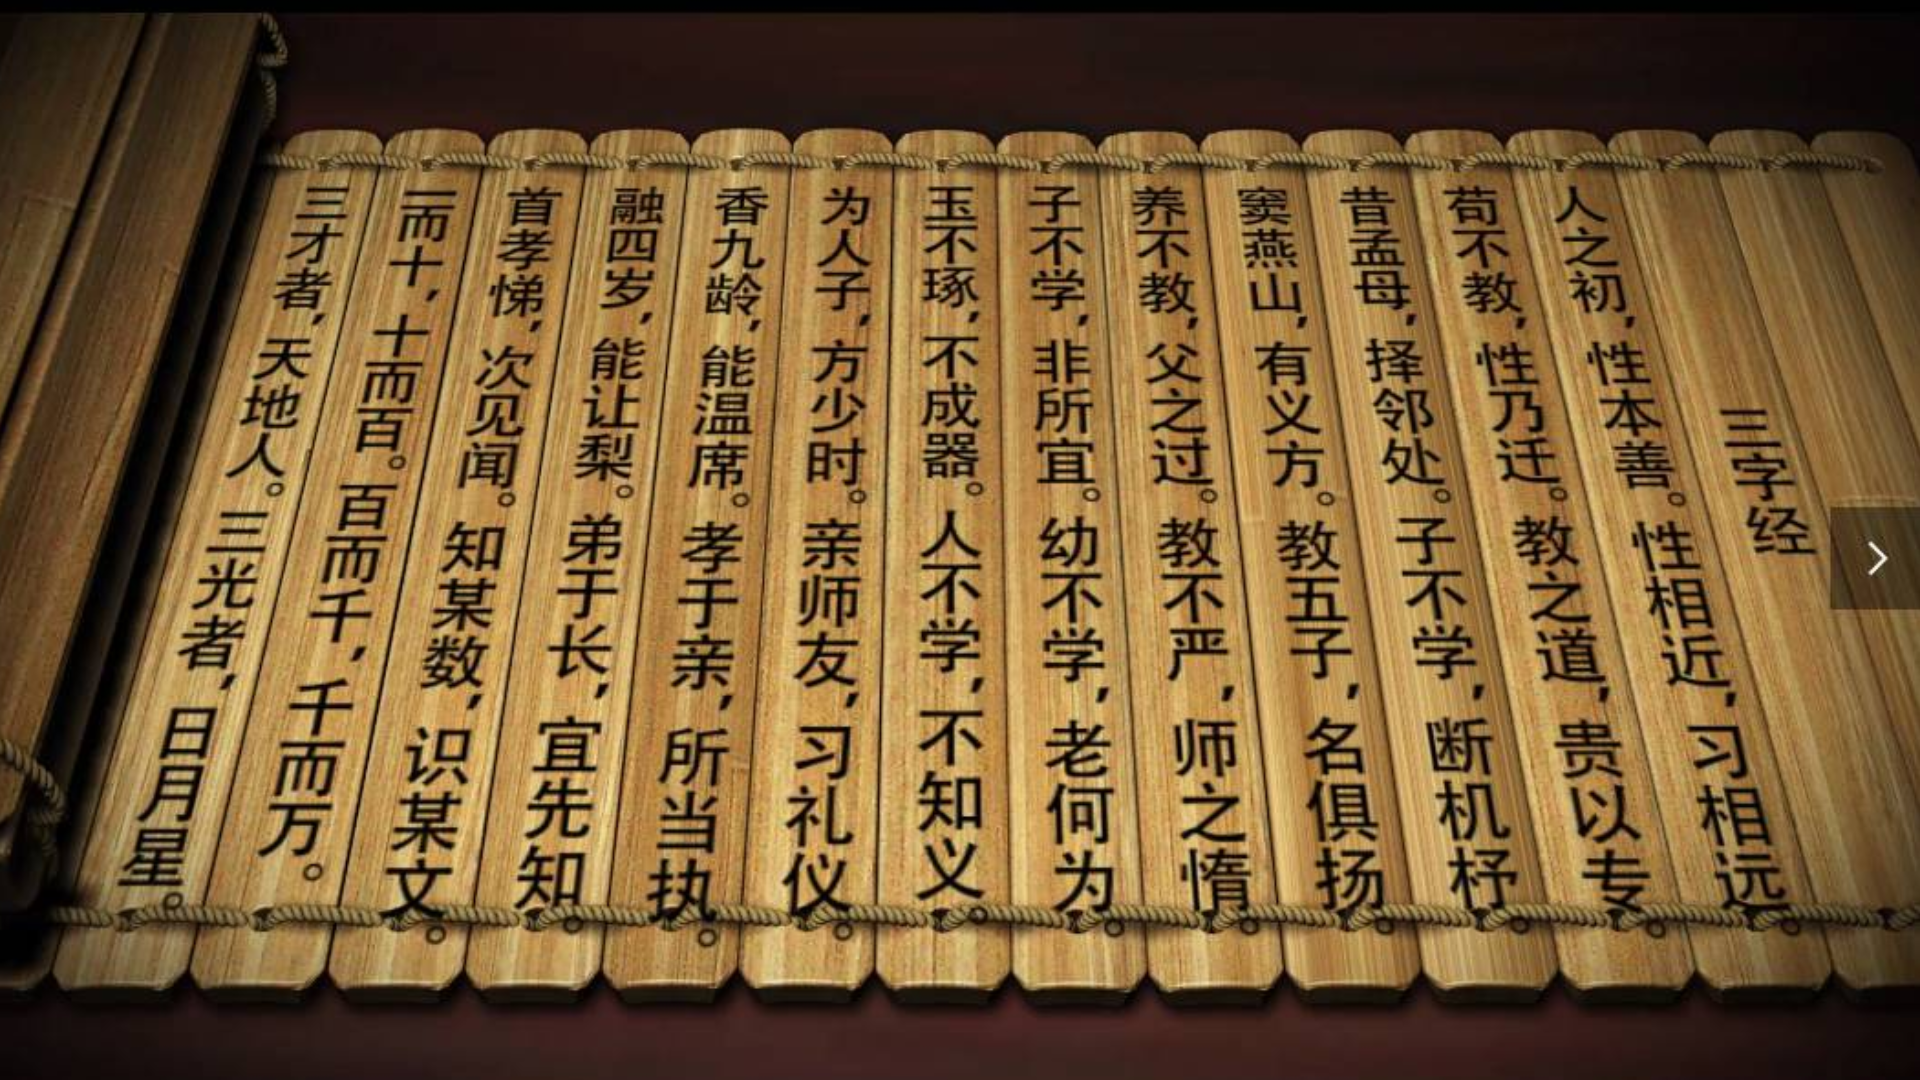 三字经
人之初，性本善。性相近，习相远。
苟不教，性乃迁。教之道，贵以专。
昔孟母，择邻处。子不学，断机杼。
窦燕山，有义方。教五子，名俱扬。
养不教，父之过。教不严，师之惰。
子不学，非所宜。幼不学，老何为。
玉不琢，不成器。人不学，不知义。
为人子，方少时。亲师友，习礼仪。
香九龄，能温席。孝于亲，所当执。
融四岁，能让梨。弟于长，宜先知。
首孝悌，次见闻。知某数，识某文。
一而十，十而百。百而千，千而万。
三才者，天地人。三光者，日月星。